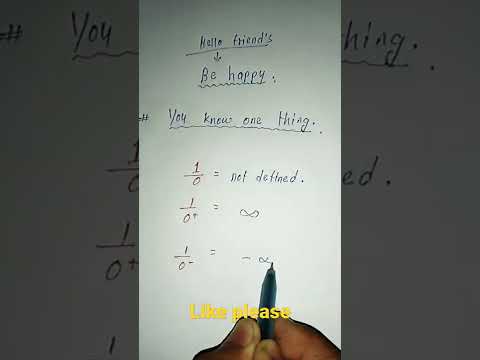 Hello friend's
↓
Be happy.
# You know one thing.
1/0 = not defined.
1/0⁺ = ∞
1/0⁻ = - ∝
Like please